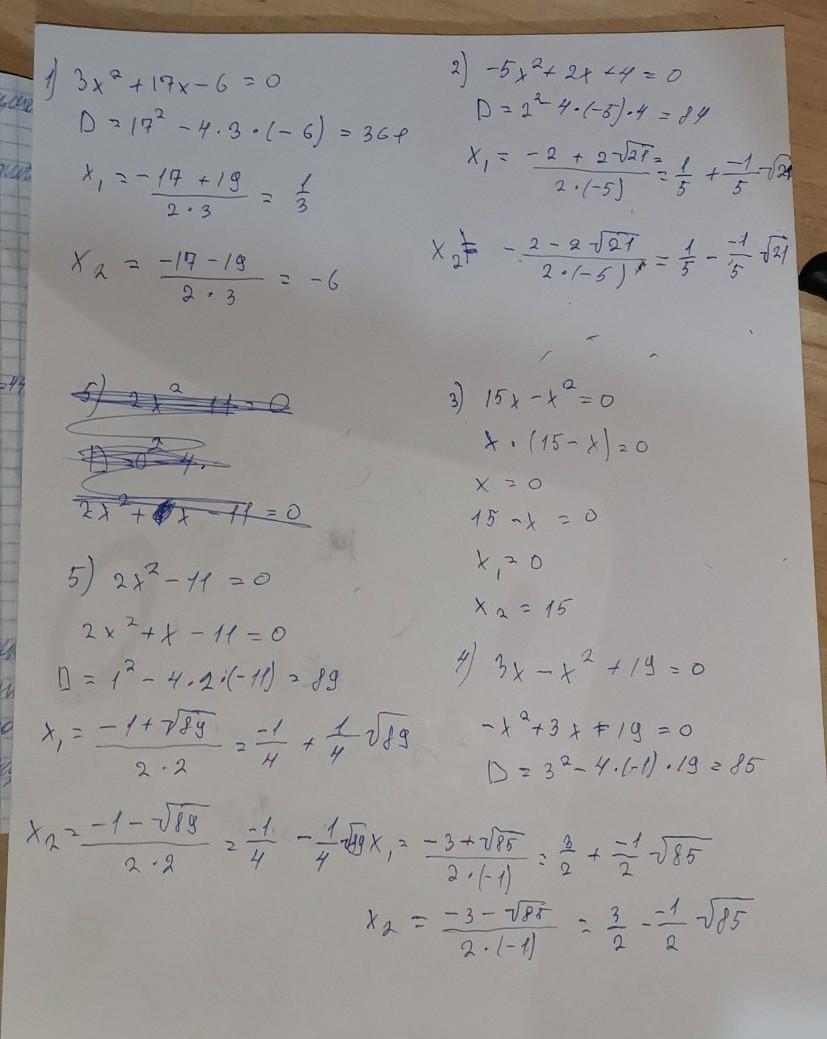 1) 3x² + 17x - 6 = 0
D = 17² - 4 · 3 · (-6) = 361
x₁ = (-17 + 19)/(2 · 3) = 1/3
x₂ = (-17 - 19)/(2 · 3) = -6
2) -5x² + 2x + 4 = 0
D = 2² - 4 · (-5) · 4 = 84
x₁ = (-2 + 2√21)/(2 · (-5)) = 1/5 + (-1)/5 √21
x₂ = -(2 - 2√21)/(2 · (-5)) = 1/5 - (-1)/5 √21
5) 2x² - 11 = 0
D = 0² - 4 ·
2x² + x - 11 = 0
3) 15x - x² = 0
x · (15 - x) = 0
x = 0
15 - x = 0
x₁ = 0
x₂ = 15
5) 2x² - 11 = 0
2x² + x - 11 = 0
D = 1² - 4 · 2 · (-11) = 89
x₁ = (-1 + √89)/(2 · 2) = (-1)/4 + 1/4 √89
x₂ = (-1 - √89)/(2 · 2) = (-1)/4 - 1/4 √89
4) 3x - x² + 19 = 0
-x² + 3x + 19 = 0
D = 3² - 4 · (-1) · 19 = 85
x₁ = (-3 + √85)/(2 · (-1)) = 3/2 + (-1)/2 √85
x₂ = (-3 - √85)/(2 · (-1)) = 3/2 - (-1)/2 √85